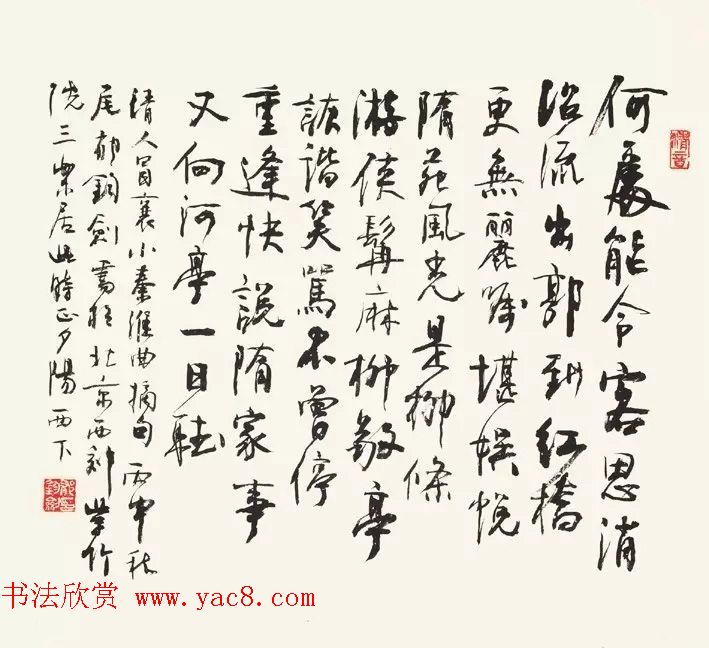 何处能令客思消
沿流出郭到红桥
更無麗瞩堪娱悦
隋苑風光是柳條
游侠髯麻柳敬亭
詼谐笑駡不曾停
重逢快説隋家事
又向河亭一日聴
清人冒襄小秦淮曲摘句 丙申秋
尾郁鈞劍書於北京西郊學竹
院三樂居此時正夕陽西下
书法欣赏 www.yac8.com